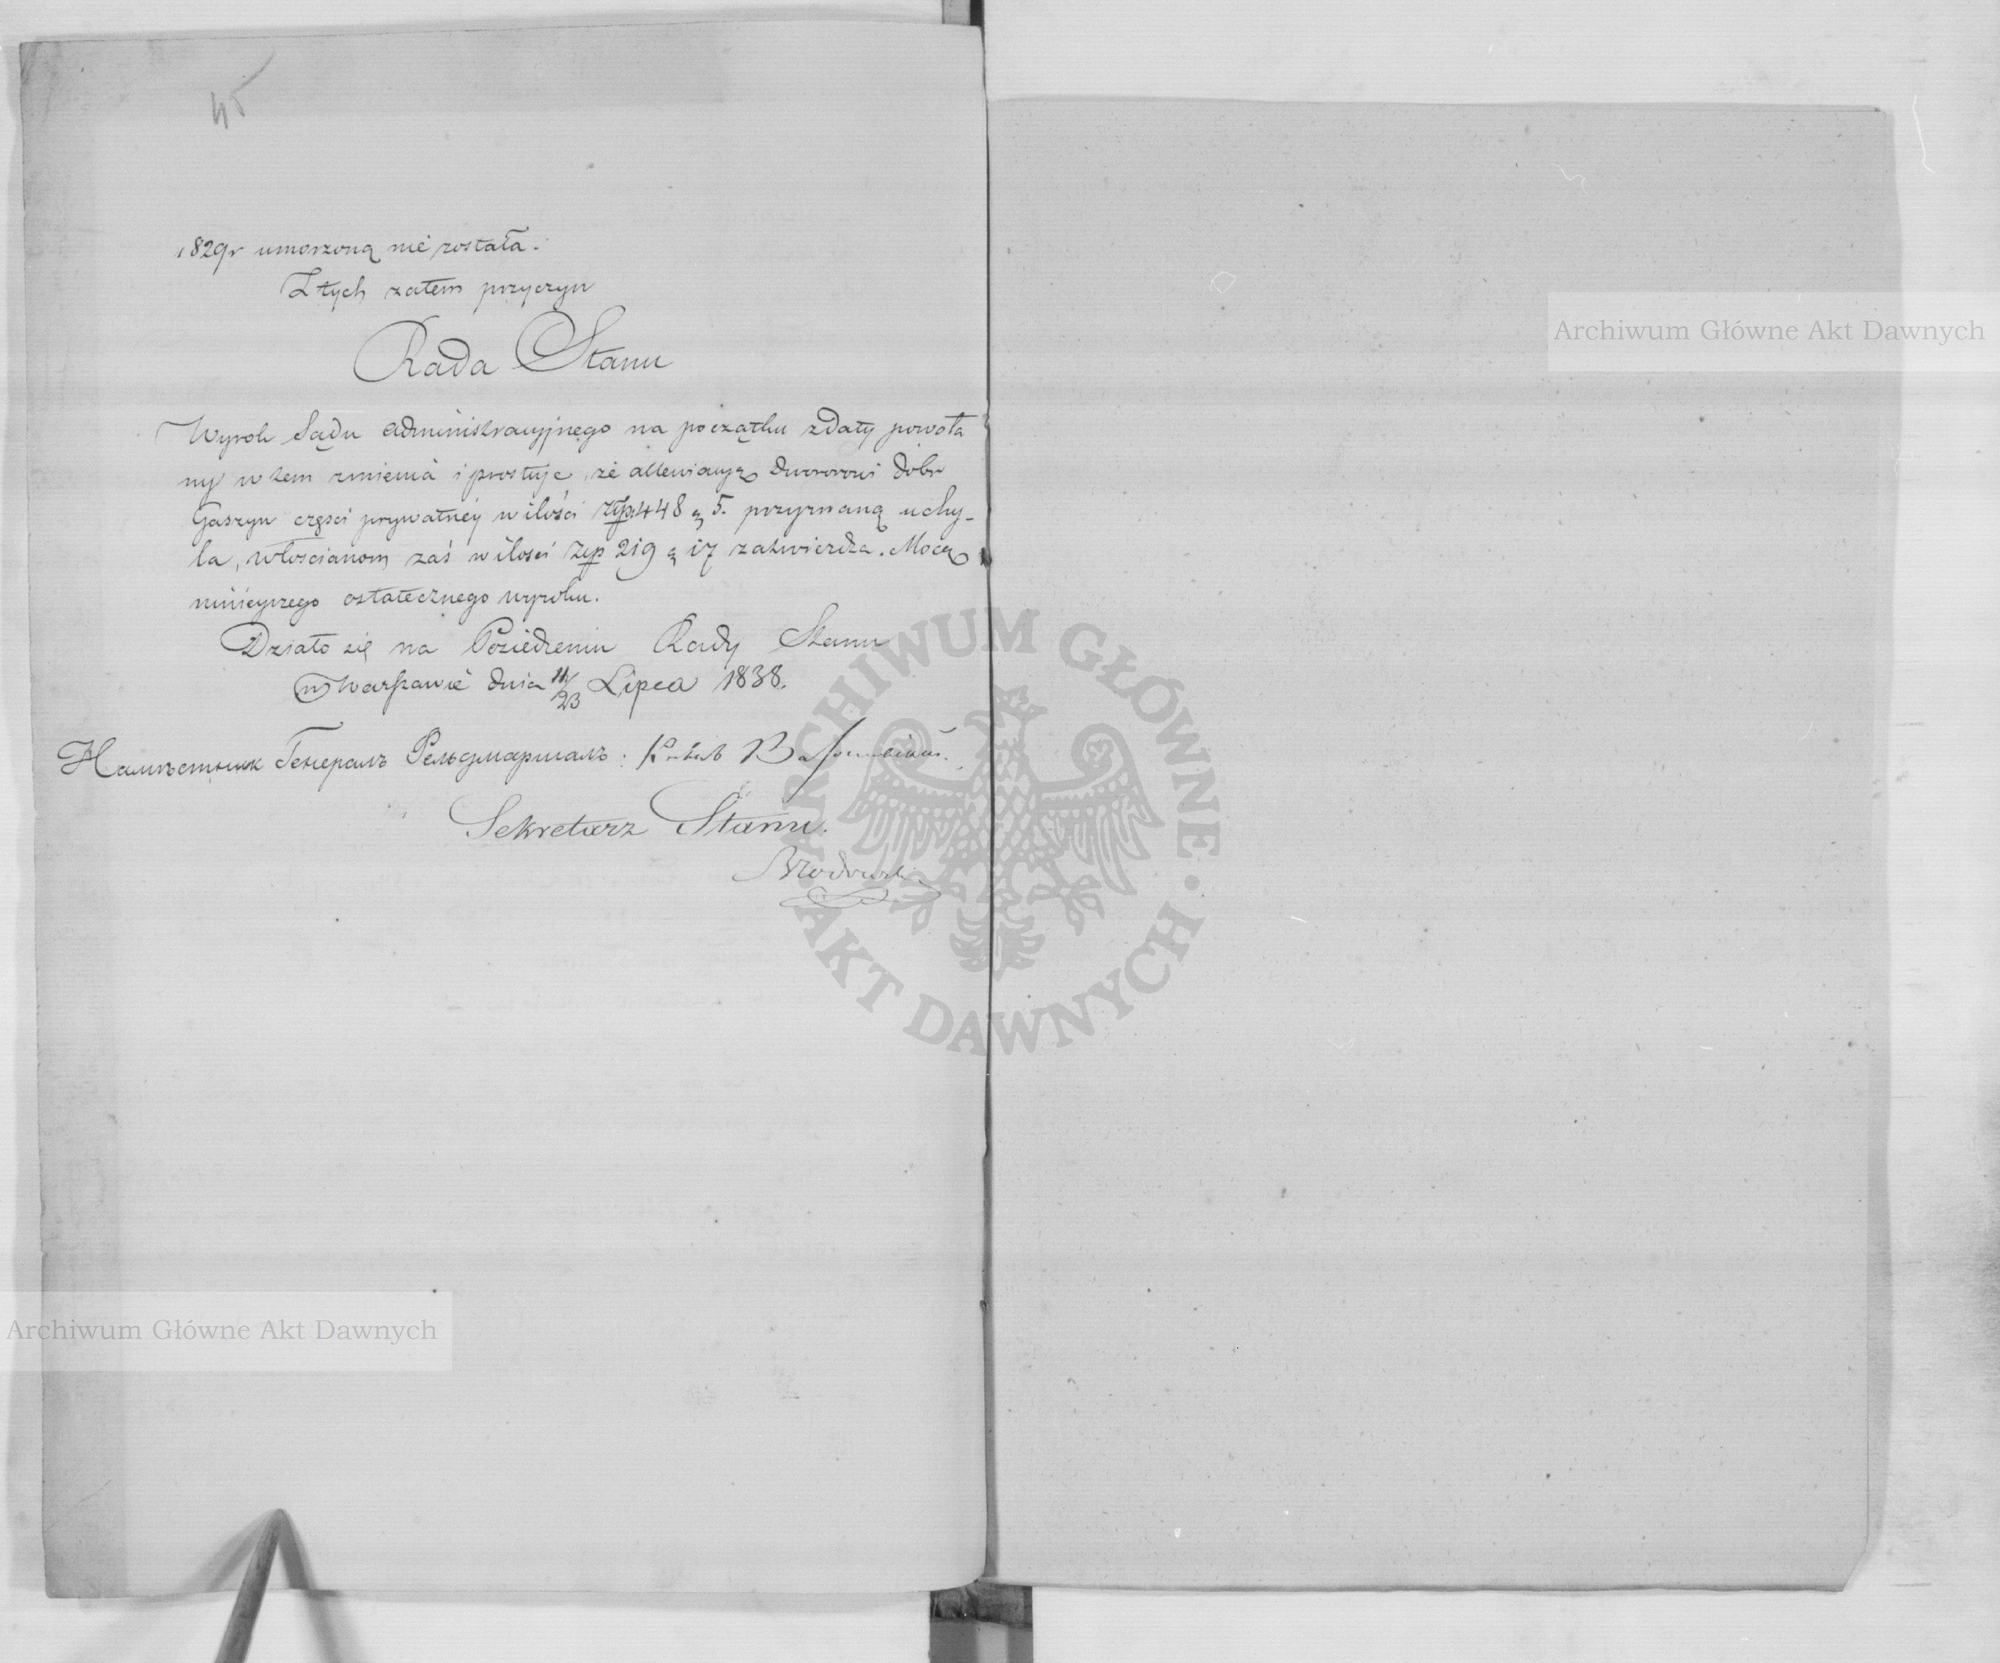 45
1829r umorzoną nie została.
Z tych zatem przyczyn
Rada Stanu
Wyrok Sądu administracyjnego na początku z daty powoła
ny w tem zmienia i prostuje, że allewiacyą dworowi dobr
Gaszyn częsci prywatnéy w ilości złp. 448 g 5. przyznaną uchy-
la, włoscianom zaś w ilosci złp 219 g 17 zatwierdza. Mocą
ninieyszego ostatecznego wyroku.
Działo się na Posiedzeniu Rady Stanu
w Warszawie dnia 11/23 Lipca 1838.
Намѣстник Генералъ Фельдмаршалъ:
Sekretarz Stanu.
Brodowski
Archiwum Główne Akt Dawnych
Archiwum Główne Akt Dawnych
ARCHIWUM GŁÓWNE · AKT DAWNYCH ·